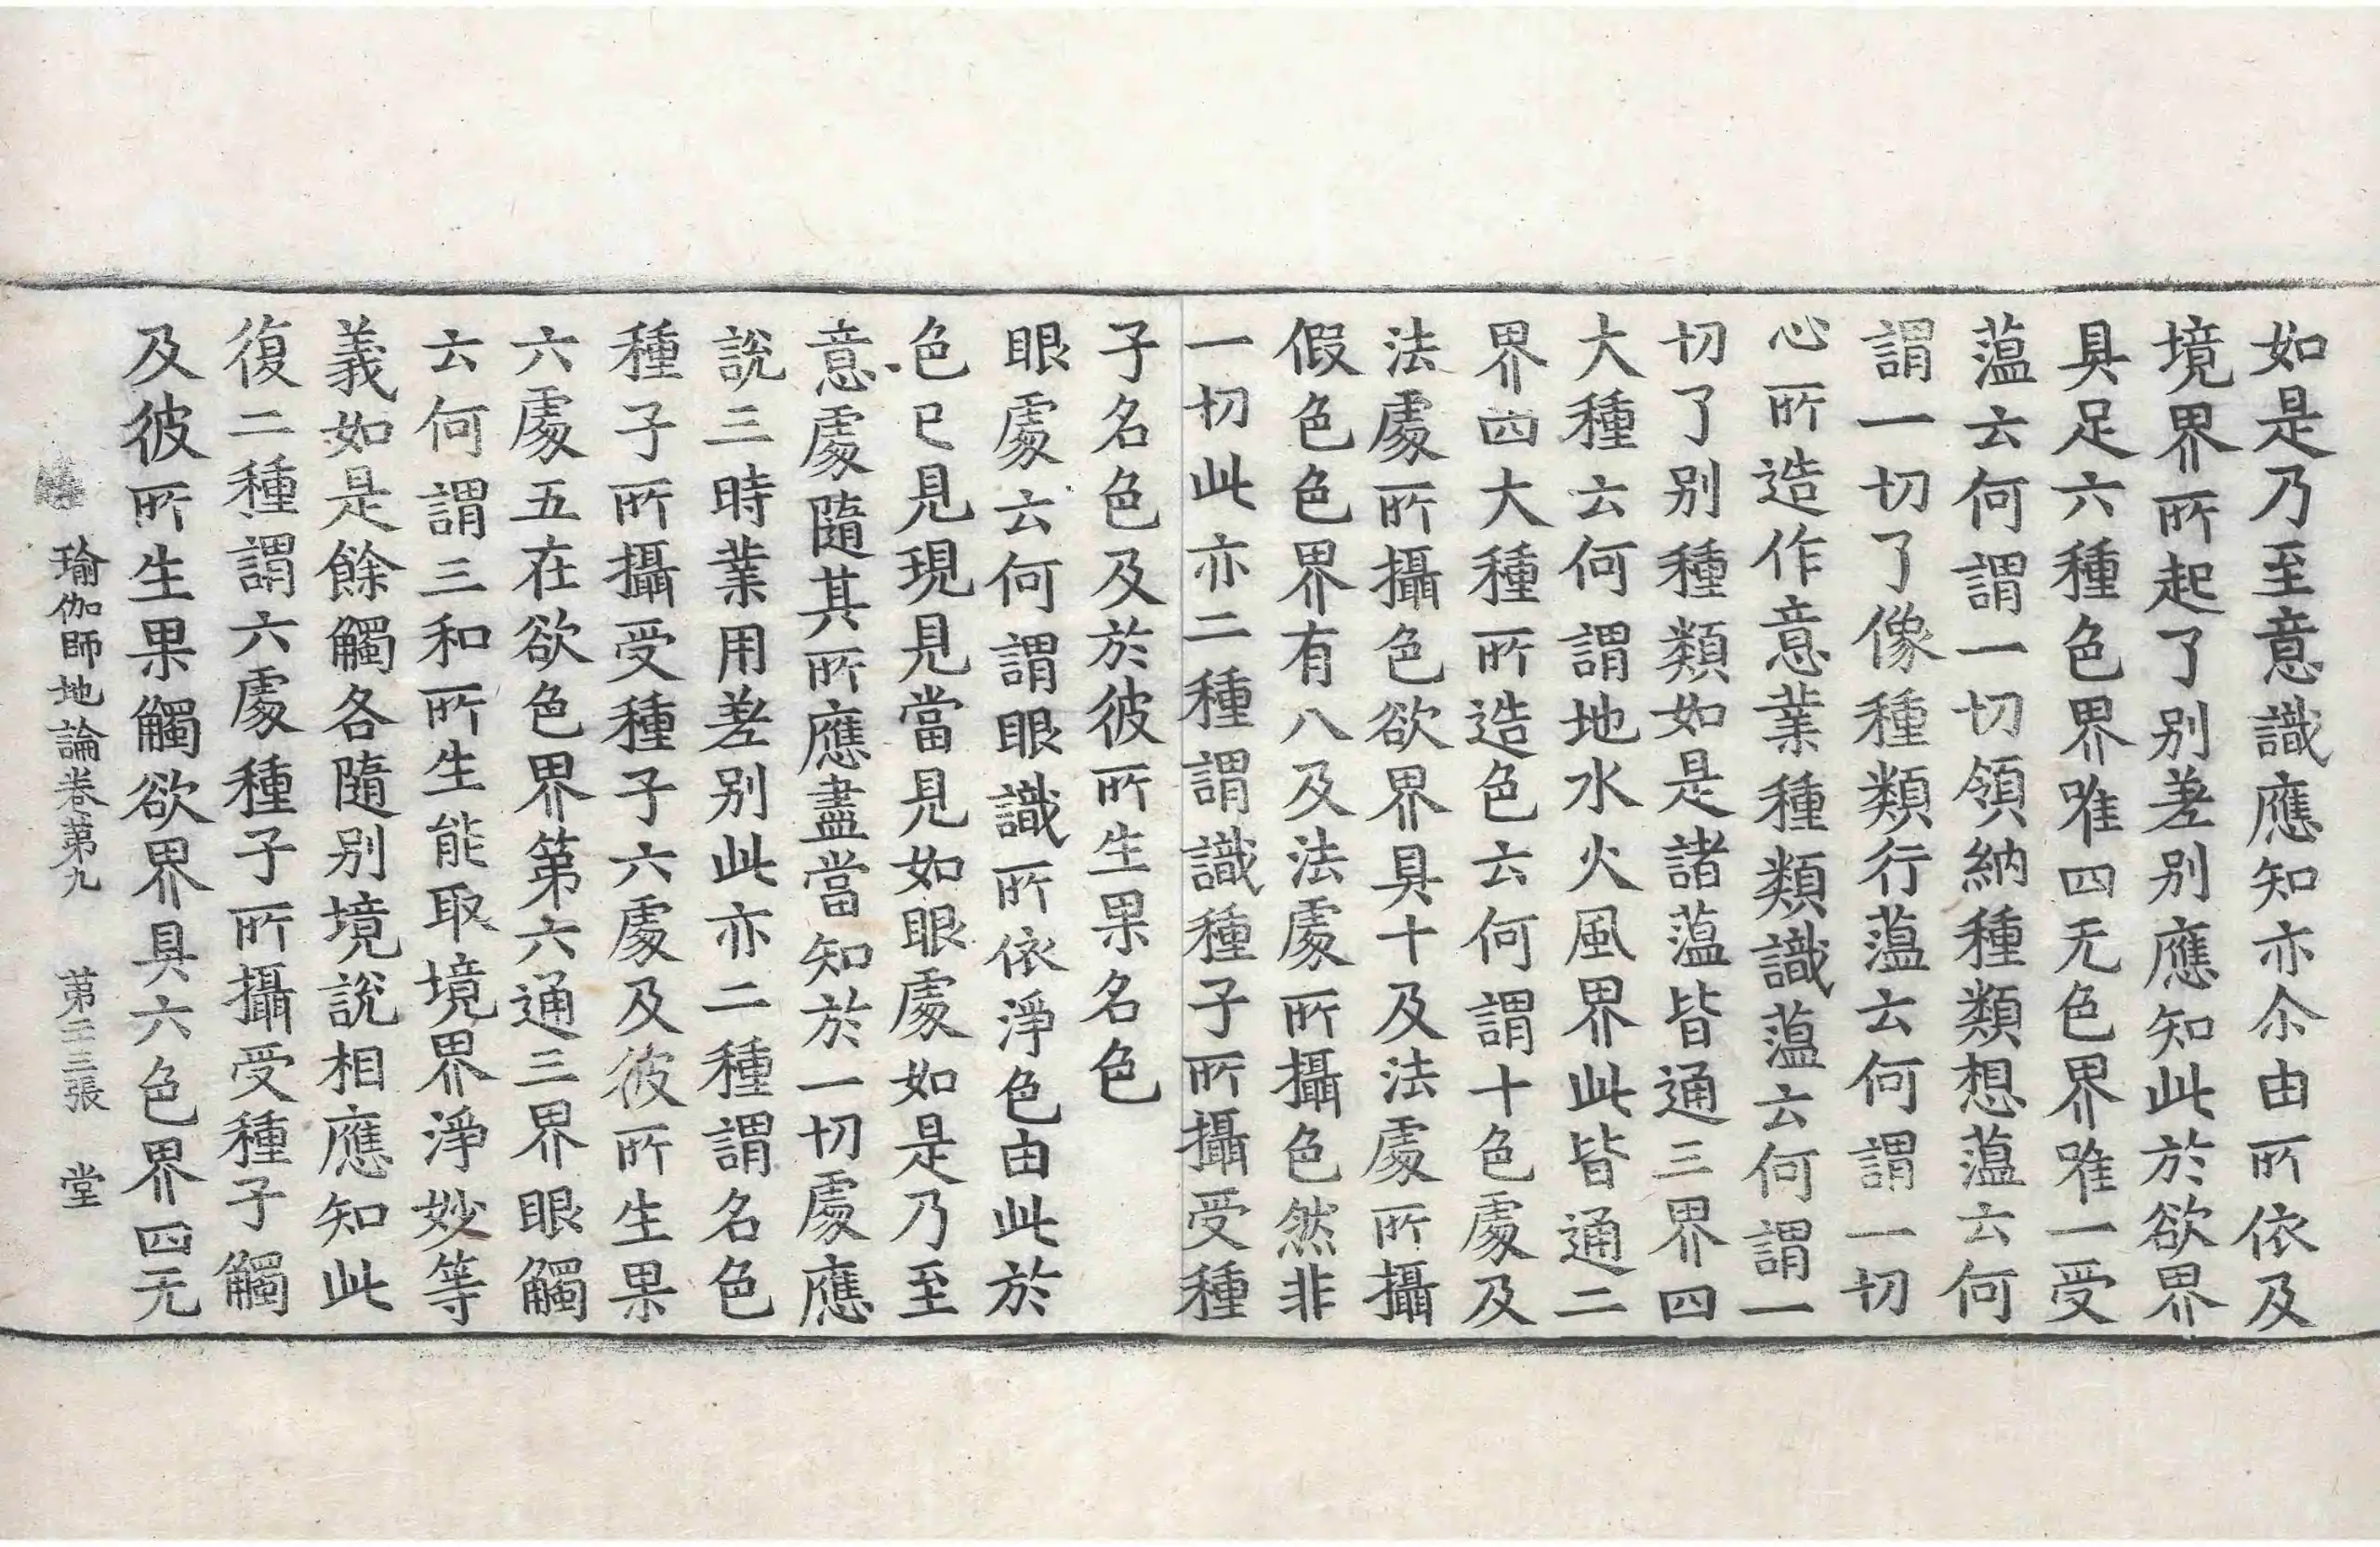 如是乃至意識應知亦尒由所依及
境界所起了别差别應知此於欲界
具足六種色界唯四无色界唯一受
蕰云何謂一切領納種類想蕰云何
謂一切了像種類行蕰云何謂一切
心所造作意業種類識蕰云何謂一
切了别種類如是諸蕰皆通三界四
大種云何謂地水火風界此皆通二
界四大種所造色云何謂十色處及
法處所攝色欲界具十及法處所攝
假色色界有八及法處所攝色然非
一切此亦二種謂識種子所攝受種
子名色及於彼所生果名色
眼處云何謂眼識所依淨色由此於
色已見現見當見如眼處如是乃至
意處隨其所應盡當知於一切處應
說三時業用差别此亦二種謂名色
種子所攝受種子六處及彼所生果
六處五在欲色界第六通三界眼觸
云何謂三和所生能取境界淨妙等
義如是餘觸各隨别境說相應知此
復二種謂六處種子所攝受種子觸
及彼所生果觸欲界具六色界四无
瑜伽師地論卷第九 第二十三張 堂